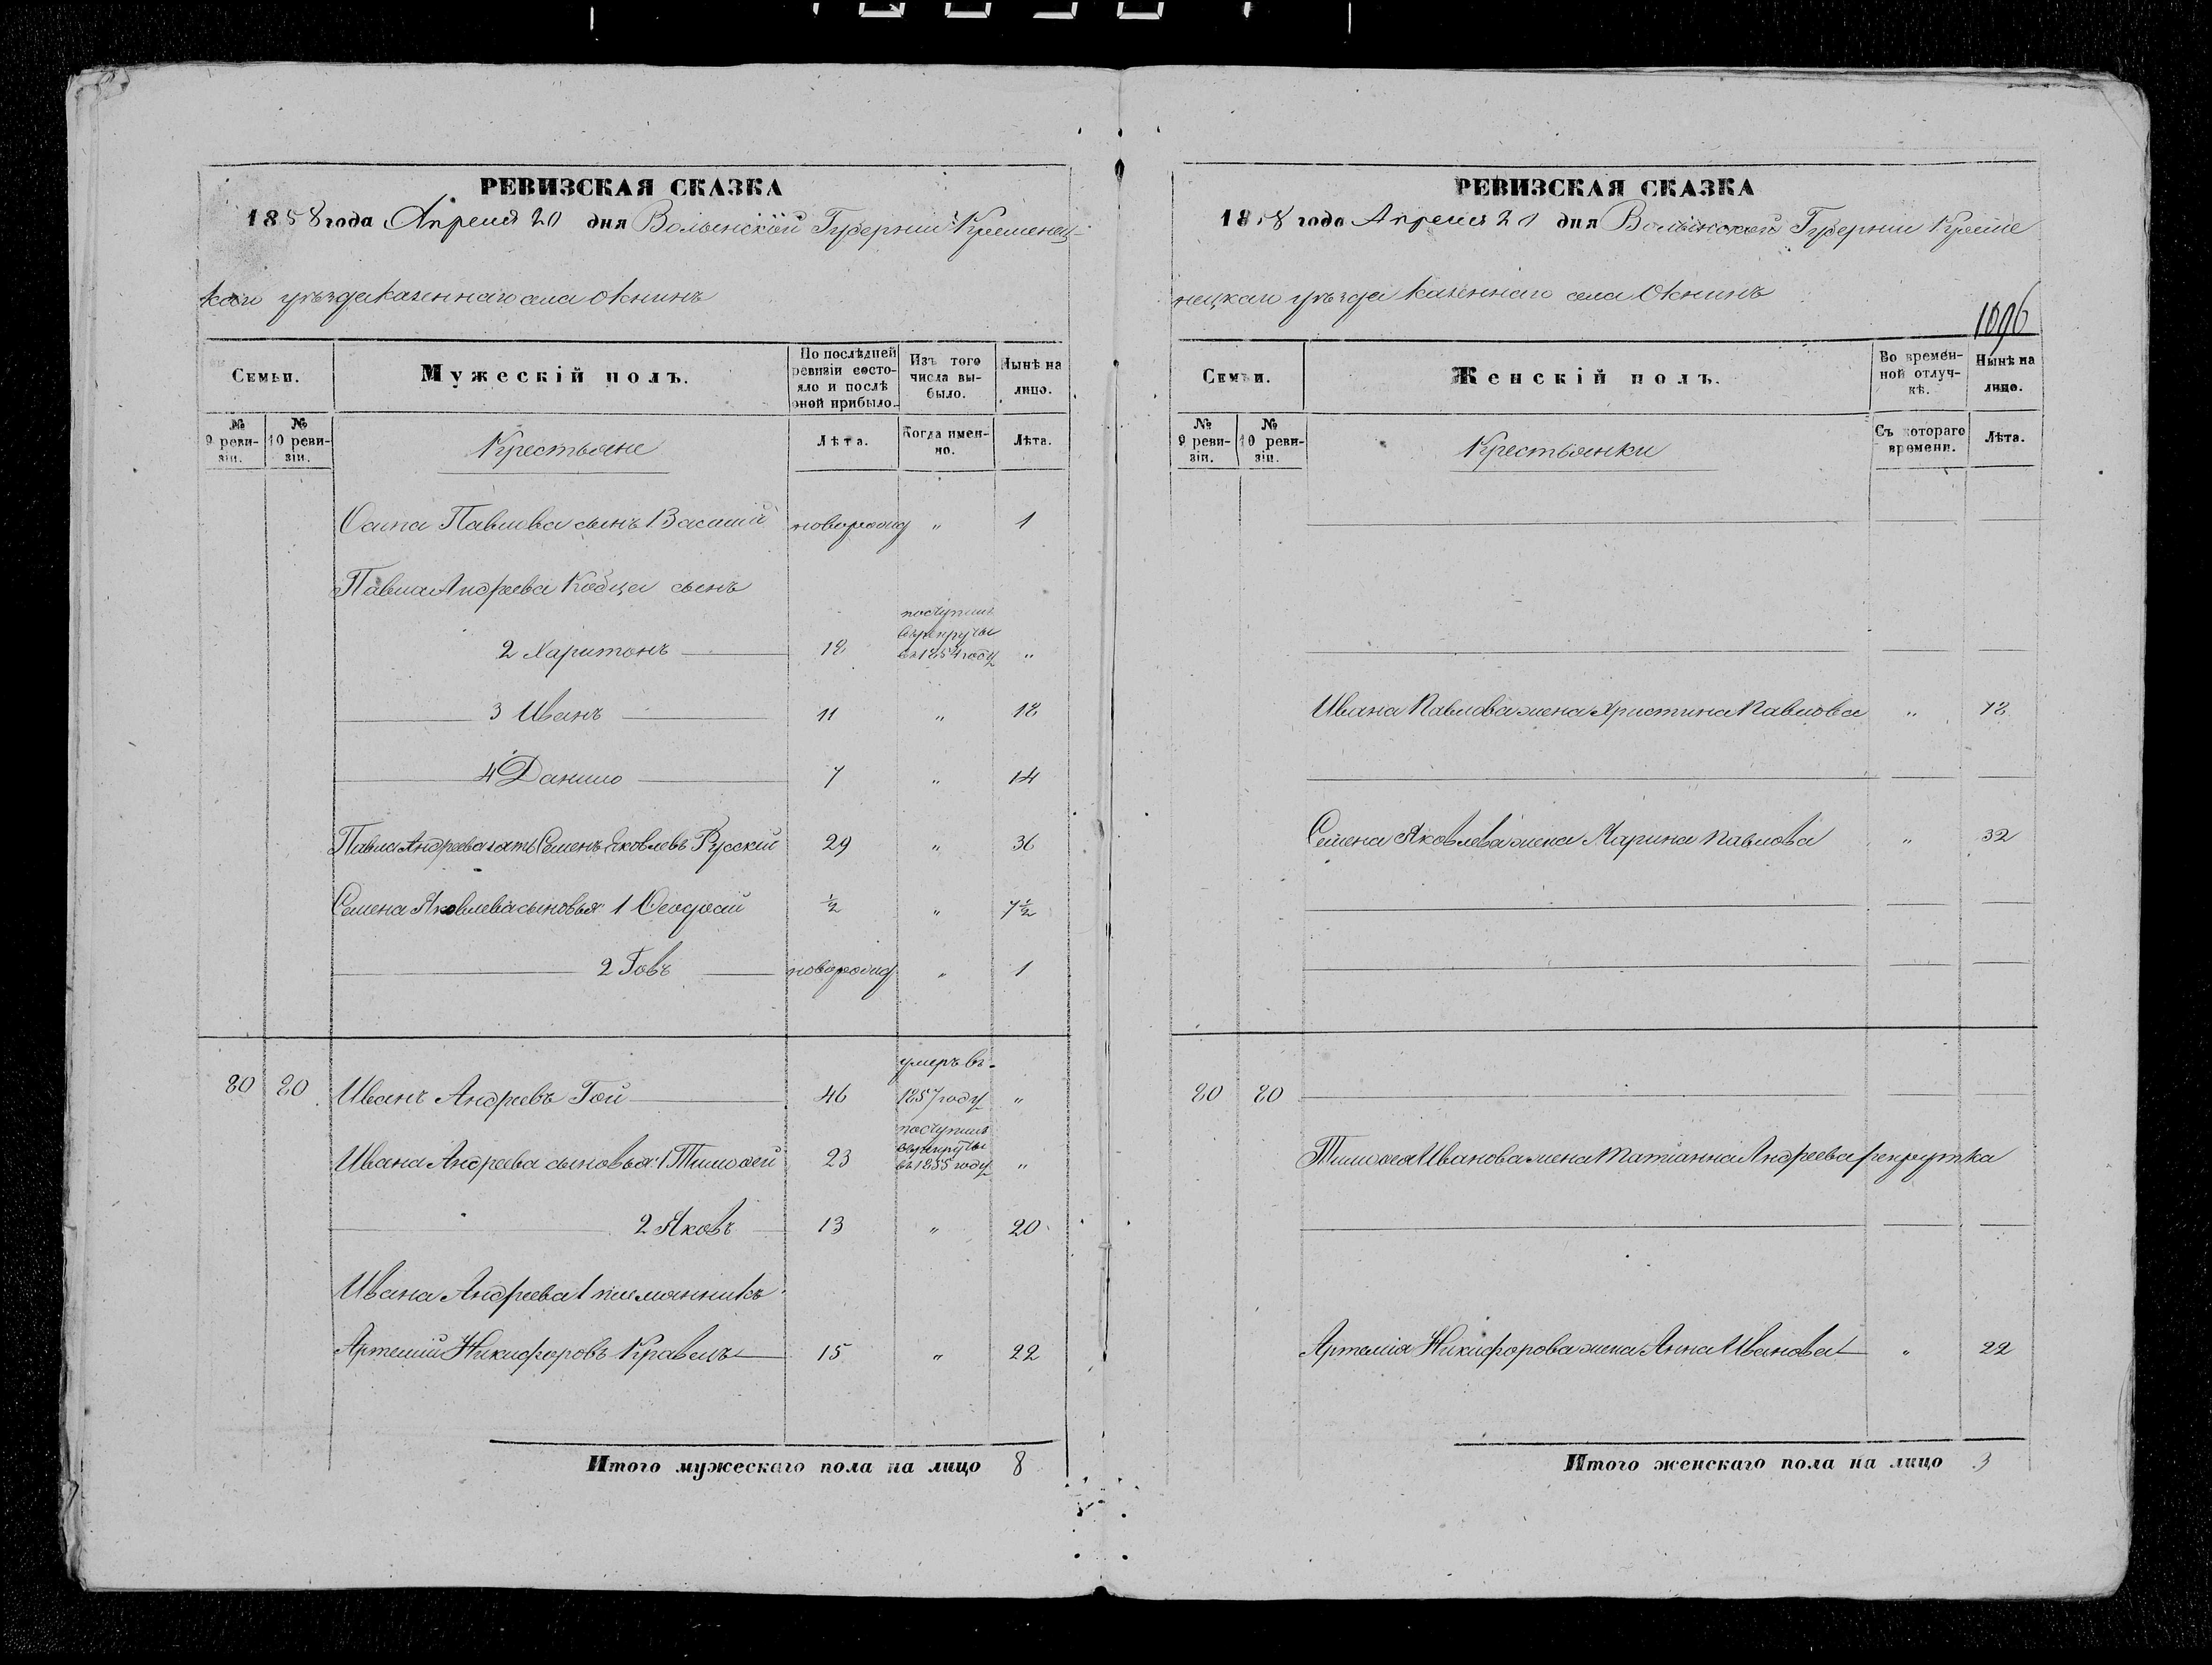 РЕВИЗСКАЯ СКАЗКА
1858 года Апреля 20 дня Волынской Губернии Кременец-
каго уѣзда казеннаго села Окнинъ
Семьи.
Мужескій полъ.
По послѣдней ревизіи состояло и послѣ оной прибыло.
Изъ того числа выбыло.
Нынѣ на лицо.
№ 9 ревизіи.
№ 10 ревизіи.
Крестьяне
Лѣта.
Когда именно.
Лѣта.
Осипа Павлова сынъ Василій новорожд " 1
Павла Андреева сынъ
2 Харитонъ 12 поступилъ въ рекруты въ 1854 году "
3 Иванъ 11 " 18
4 Данило 7 " 14
Павла Андреева зять Семенъ Яковлевъ Русский 29 " 36
Семена Яковлева сыновья 1 ½ " 7½
2 новорожд " 1
20 20 Иванъ Андреевъ Гой 46 умеръ въ 1857 году "
Ивана Андреева сыновья: 1 Тимоѳей 23 поступилъ въ рекруты въ 1855 году "
2 Яковъ 13 " 20
Ивана Андреева племянникъ
Артемій Никифоровъ Кравецъ 15 " 22
Итого мужескаго пола на лицо 8
РЕВИЗСКАЯ СКАЗКА
1858 года Апреля 20 дня Волынской Губернии Креме
нецкаго уѣзда казеннаго села Окнинъ
1096
Семьи.
Женскій полъ.
Во временной отлучкѣ.
Нынѣ на лицо.
№ 9 ревизіи.
№ 10 ревизіи.
Крестьянки
Съ котораго времени.
Лѣта.
Ивана Павлова жена Христина Павлова " 18
Семена Яковлева жена Марина Павлова " 32
20 20
Тимоѳея Иванова жена Татіанна Андреева рекрутка
Артемія Никифорова жена Анна Иванова " 22
Итого женскаго пола на лицо 3